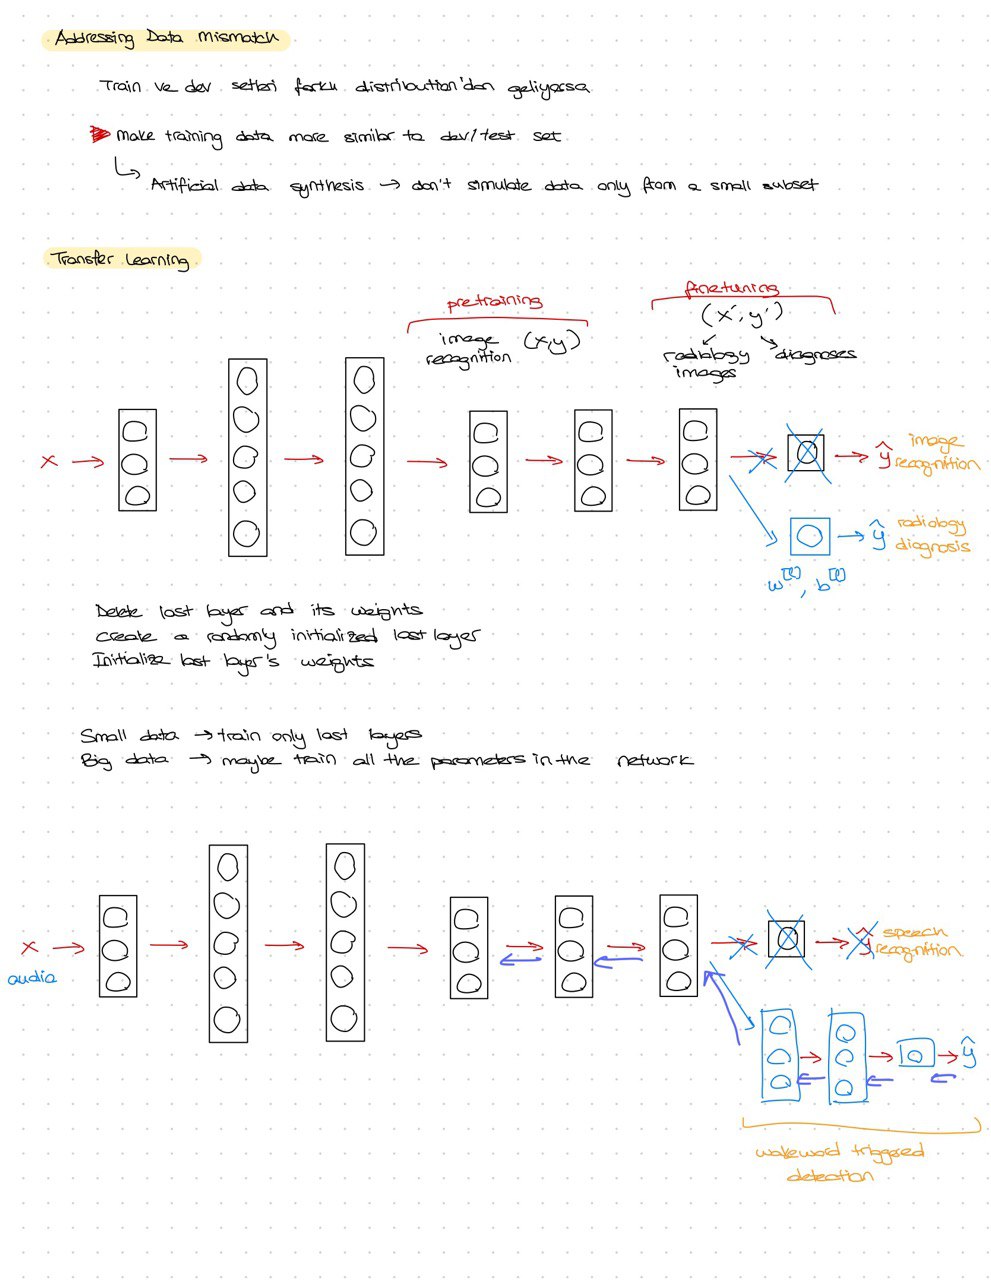 Addressing Data Mismatch
Train ve dev setleri farklı distribution'dan geliyorsa
make training data more similar to dev/test set
Artificial data synthesis → don't simulate data only from a small subset
Transfer Learning
pretraining
finetuning
image recognition (x,y)
(x', y')
radiology images
diagnoses
x
ŷ
image recognition
ŷ
radiology diagnosis
w[l], b[l]
Delete last layer and its weights
Create a randomly initialized last layer
Initialize last layer's weights
Small data → train only last layers
Big data → maybe train all the parameters in the network
x
audio
ŷ
speech recognition
ŷ
wakeword triggered
detection